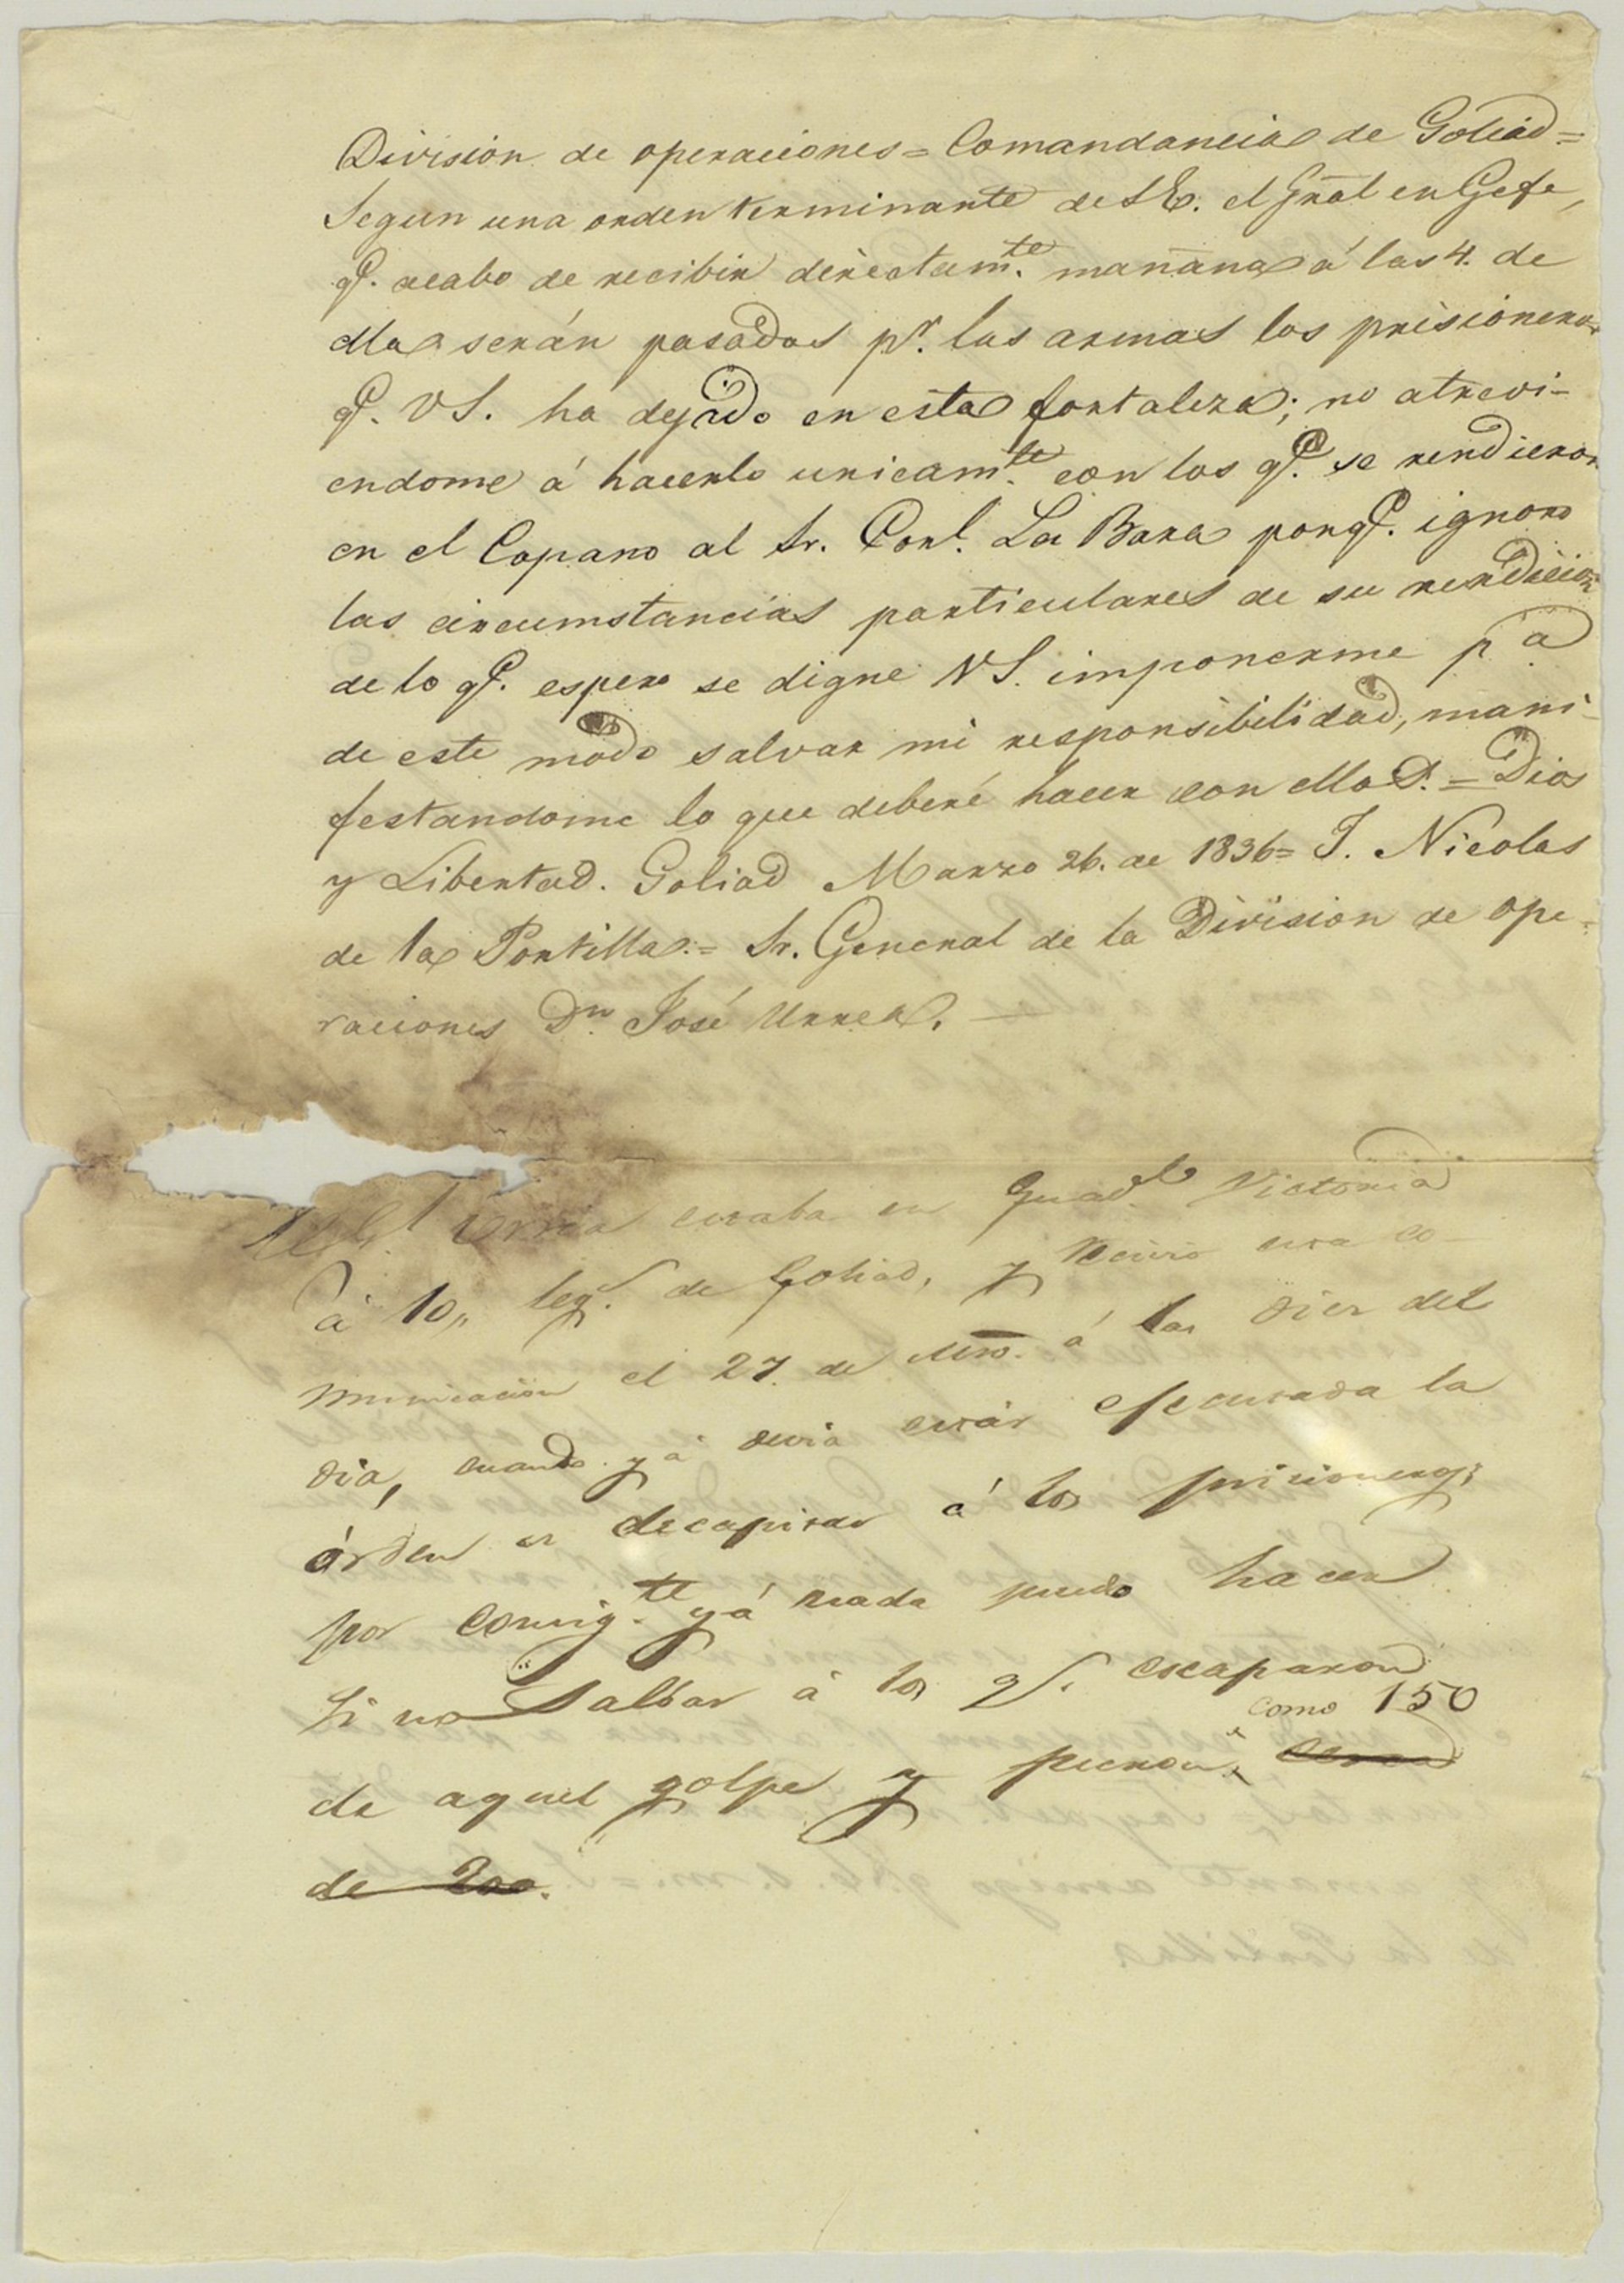 Division de operaciones = Comandancia de Goliad =
Segun una orden terminante de S E. el Gral en Gefe,
q.e acabo de recibir directam.te mañana á las 4. de
ella serán pasados p.r las armas los prisioneros
q.e V S. ha dejado en esta fortaleza; no atrevi-
endome á hacerlo unicam.te con los q.e se rendieron
en el Copano al Sr. Corl. La Bara porq.e ignoro
las circumstancias particulares de su rendicion
de lo q.e espero se digne V S. imponerme p a
de este modo salvar mi responsibilidad, mani-
festandome lo que deberé hacer con ellos. = Dios
y Libertad. Goliad Marzo 26. de 1836 = J. Nicolas
de la Portilla. = Sr. General de la Division de ope-
raciones Dn. José Urrea. —
Urrea estaba en Guad.e Victoria
à 10,, leg.s de Goliad, y recivió esta co-
municacion el 27. de Mro. á las diez del
dia, cuando yá devia estár ejecutada la
órden de decapitar á los prisioneros;
por consig.te yá nada pudo hacer
si no salbar á los q.e escaparon
como 150
de aquel golpe y fueron cerca
de 200.